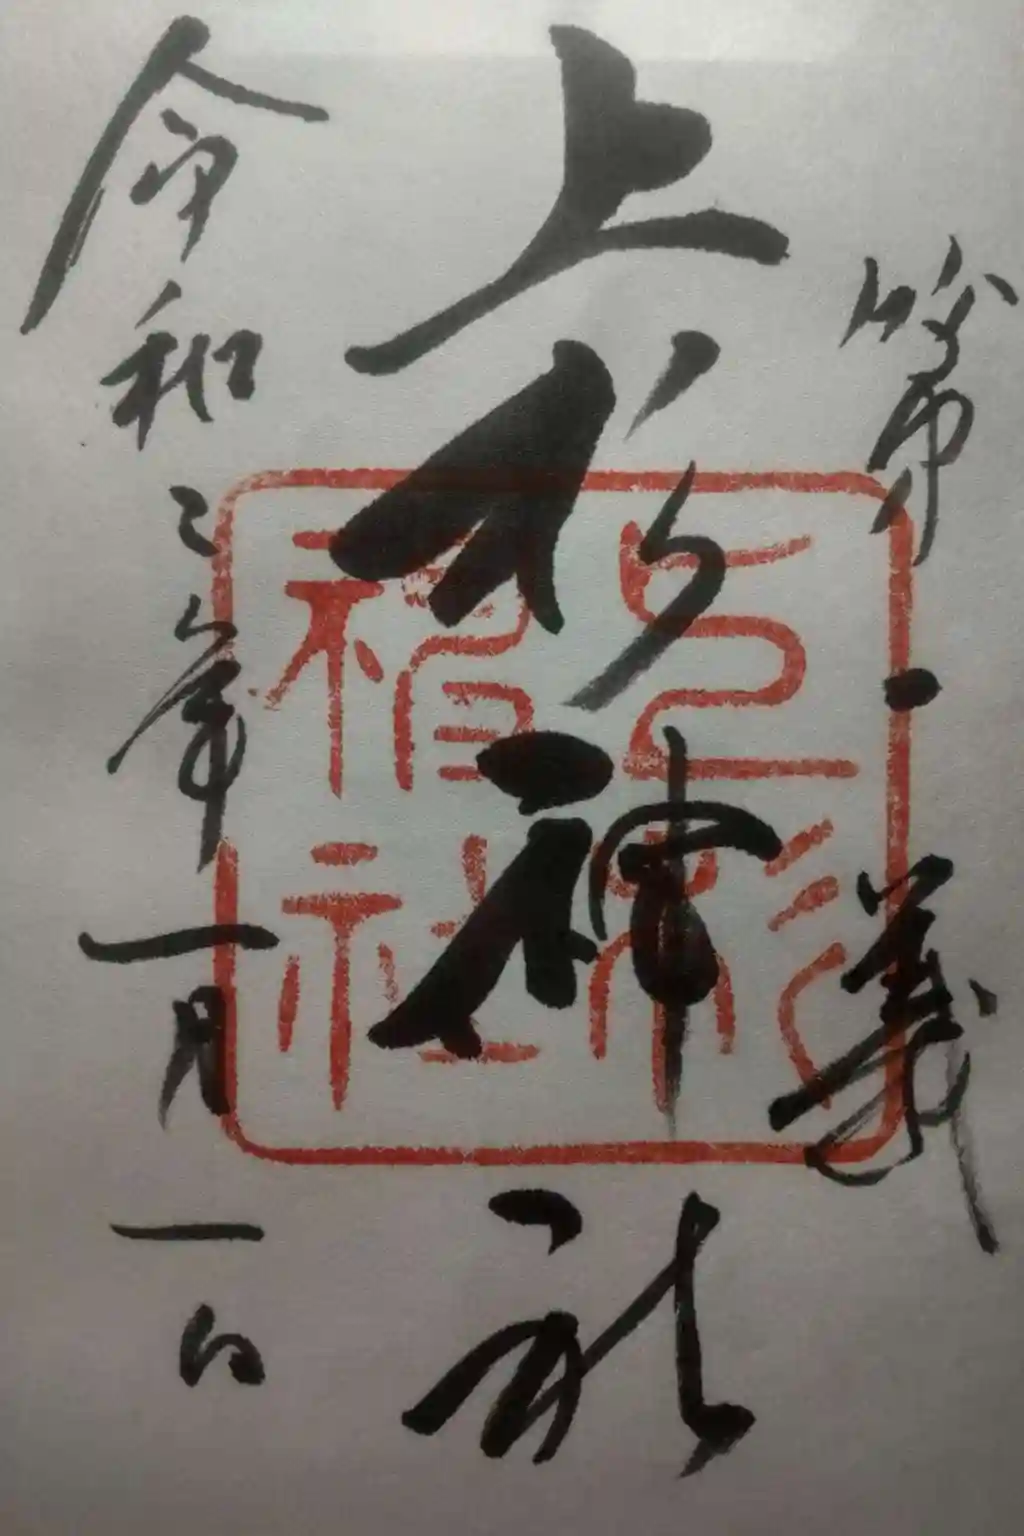 第一義
上杉神社
令和二年一月一日
上杉
神社